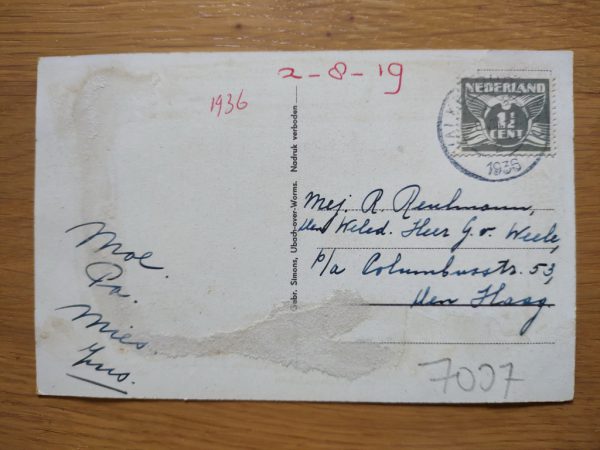 2-8-19
1936
NEDERLAND
1½
CENT
1936
Gebr. Simons, Ubach-over-Worms. Nadruk verboden
Mej. R.
den Weled. Heer G. v. Weele,
p/a Columbusstr. 53,
den Haag.
Moe.
Pa.
Mies.
7007